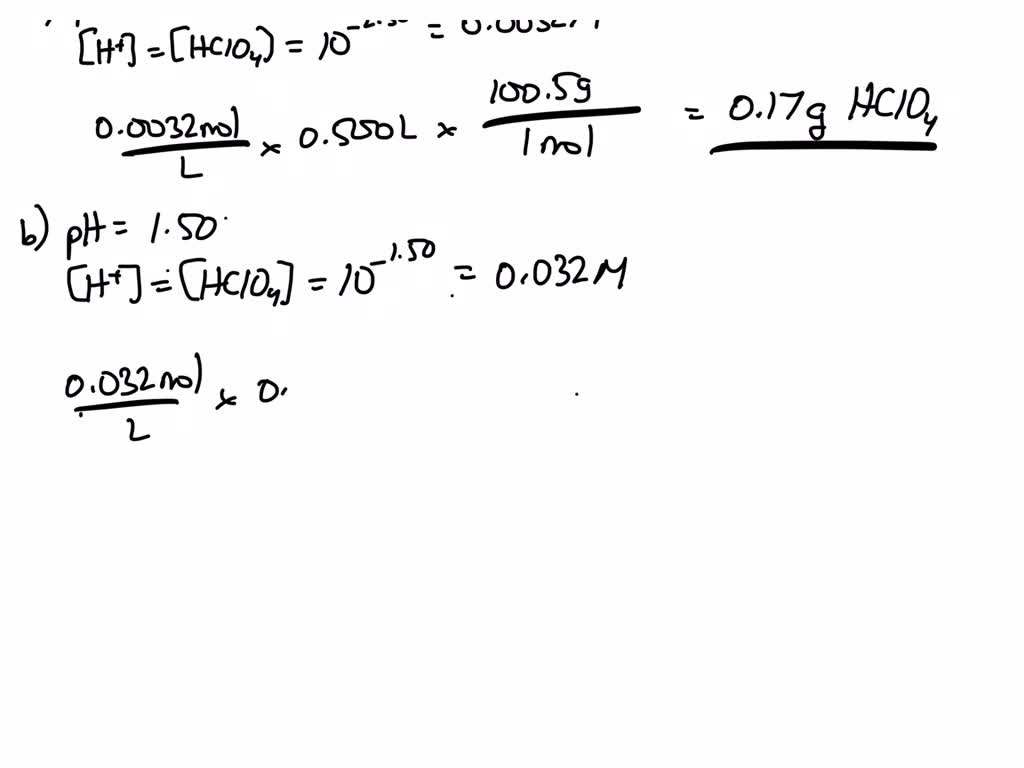 [H+] = [HClO4) = 10^-2.50 = 0.0032M
0.0032mol/L × 0.500L × 100.5g/1mol = 0.17g HClO4
b) pH = 1.50
[H+] = [HClO4] = 10^-1.50 = 0.032M
0.032mol/L × 0.